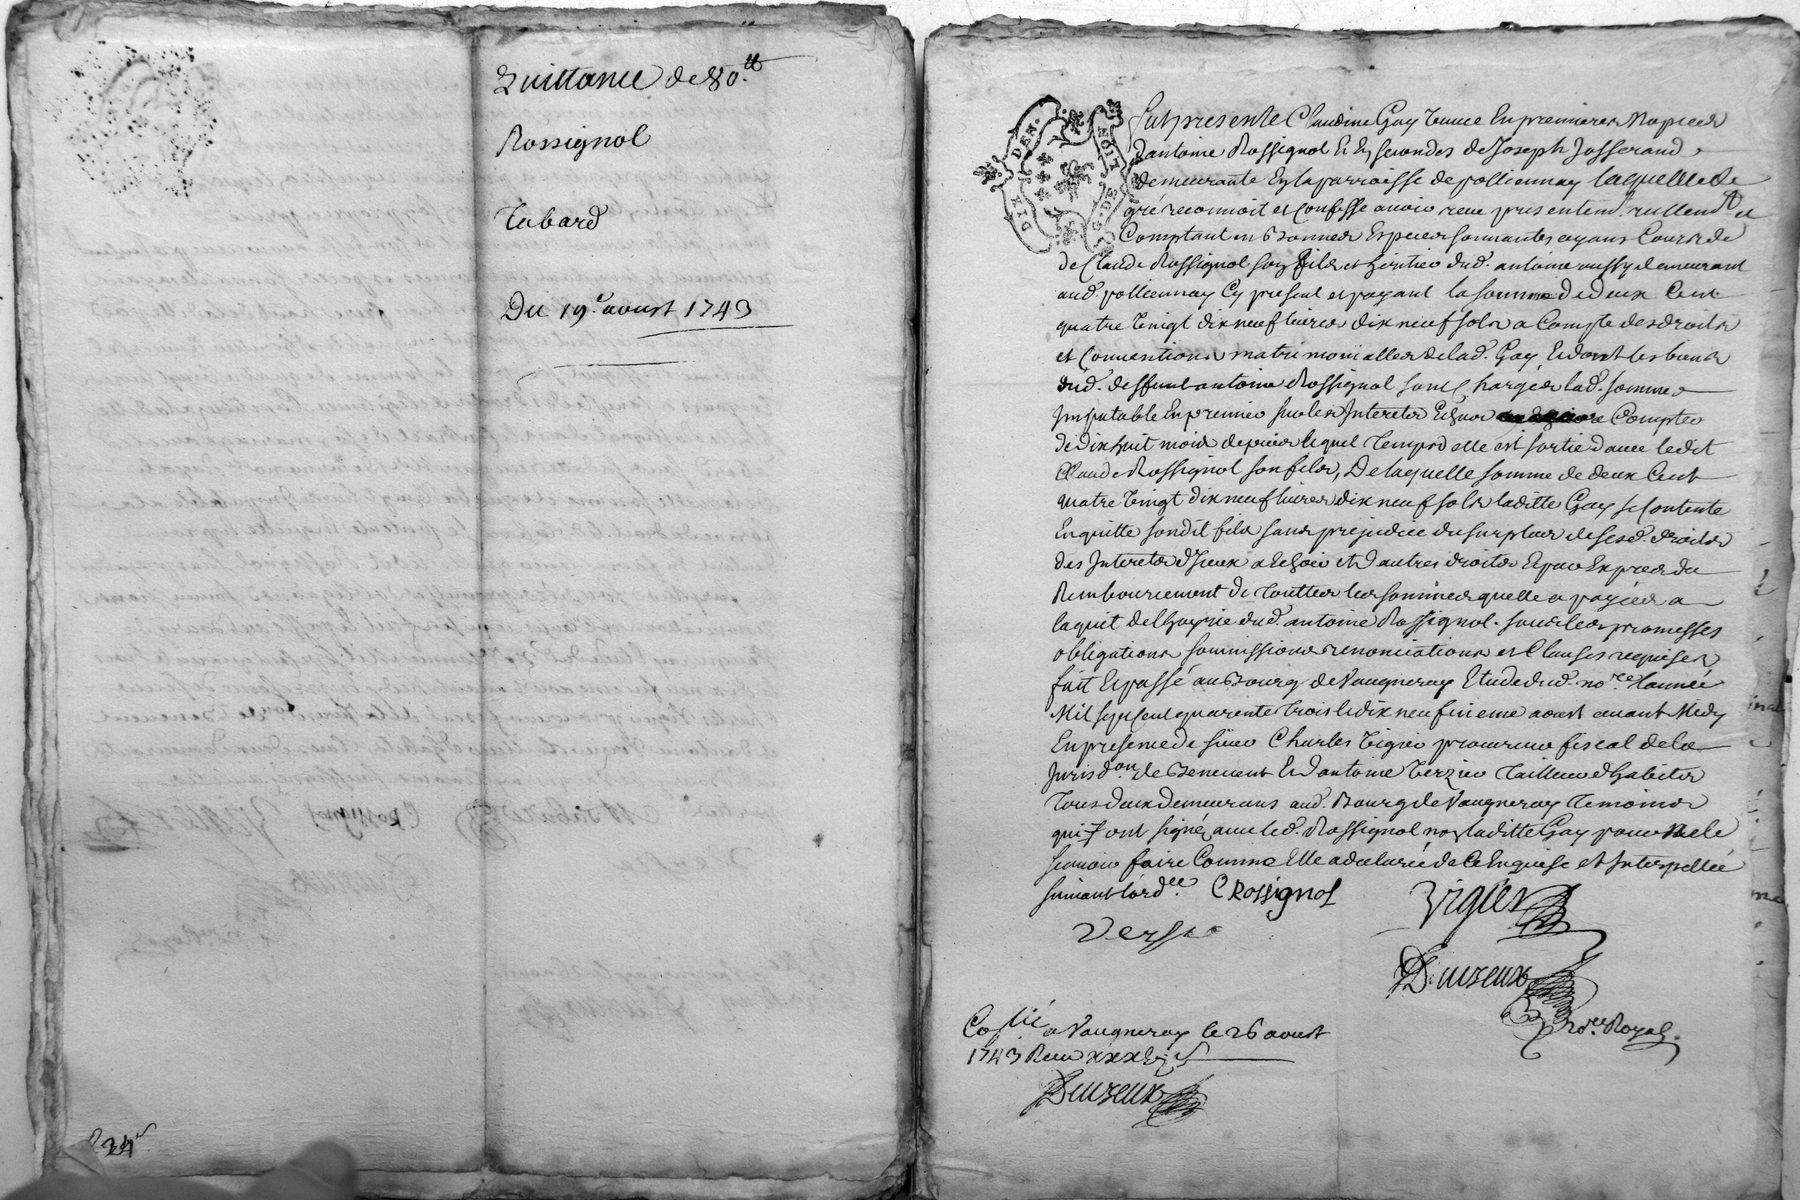 Quittance de 80.tt
Rossignol
Tabard
Du 19.e aoust 1743
24
GEN. DE LION
DIX DEN.
Fut presente Claudine Gay veuve En premieres Nopces
d'antoine Rossignol Et En secondes de Joseph Josserand
demeurante En la parroisse de pollionnay laquelle de
gré reconnoit et Confesse avoir reçu presentem.t reellem.t et
Comptant en Bonnes Especes sonnantes ayans Cours de
de Claude Rossignol son fils et heritier dud. antoine aussy demeurant
aud. pollionnay Cy present et payant la somme de deux Cent
quatre vingt dix neuf livres dix neuf sols a Compte des droits
et Conventions matrimonialles de lad. Gay Et dont les biens
dud. deffunt antoine Rossignol sont Chargés lad. somme
Imputable En premier sur les Interets Echus Compter
de dix huit mois depuis lequel Temps elle est sortie d'avec ledit
Claude Rossignol son fils, De laquelle somme de deux Cent
quatre vingt dix neuf livres dix neuf sols laditte Gay se Contente
En quitte sondit fils sans prejudice du surplus de sesd. droits
des Interets d'Iceux a Echoir et d'autres droits Et par Exprès du
Remboursement de Touttes les sommes quelle a payées a
laquit de l'hoyrie dud. antoine Rossignol. sous les promesses
obligations soumissions renonciations et Clauses requises
fait Et passé au Bourg de Vaugneray Etude dud. no.re l'année
Mil sept cent quarente trois le dix neufvieme aoust avant Midy
En presence de sieur Charles Vigier procureur fiscal de la
Jurisd.on de Benevent Et d'antoine Verzier Tailleur d'habits
Tous deux demeurans aud. Bourg de Vaugneray Temoins
qui ont signé avec led. Rossignol non laditte Gay pour ne le
scavoir faire Comme Elle a declaré de Ce Enquise et Interpellée
suivant l'ord.ce C Rossignol Vigier
Verzie
Duzeux
no.re Royal.
Co.llé a Vaugneray le 26 aoust
1743 Reçu
Duzeux